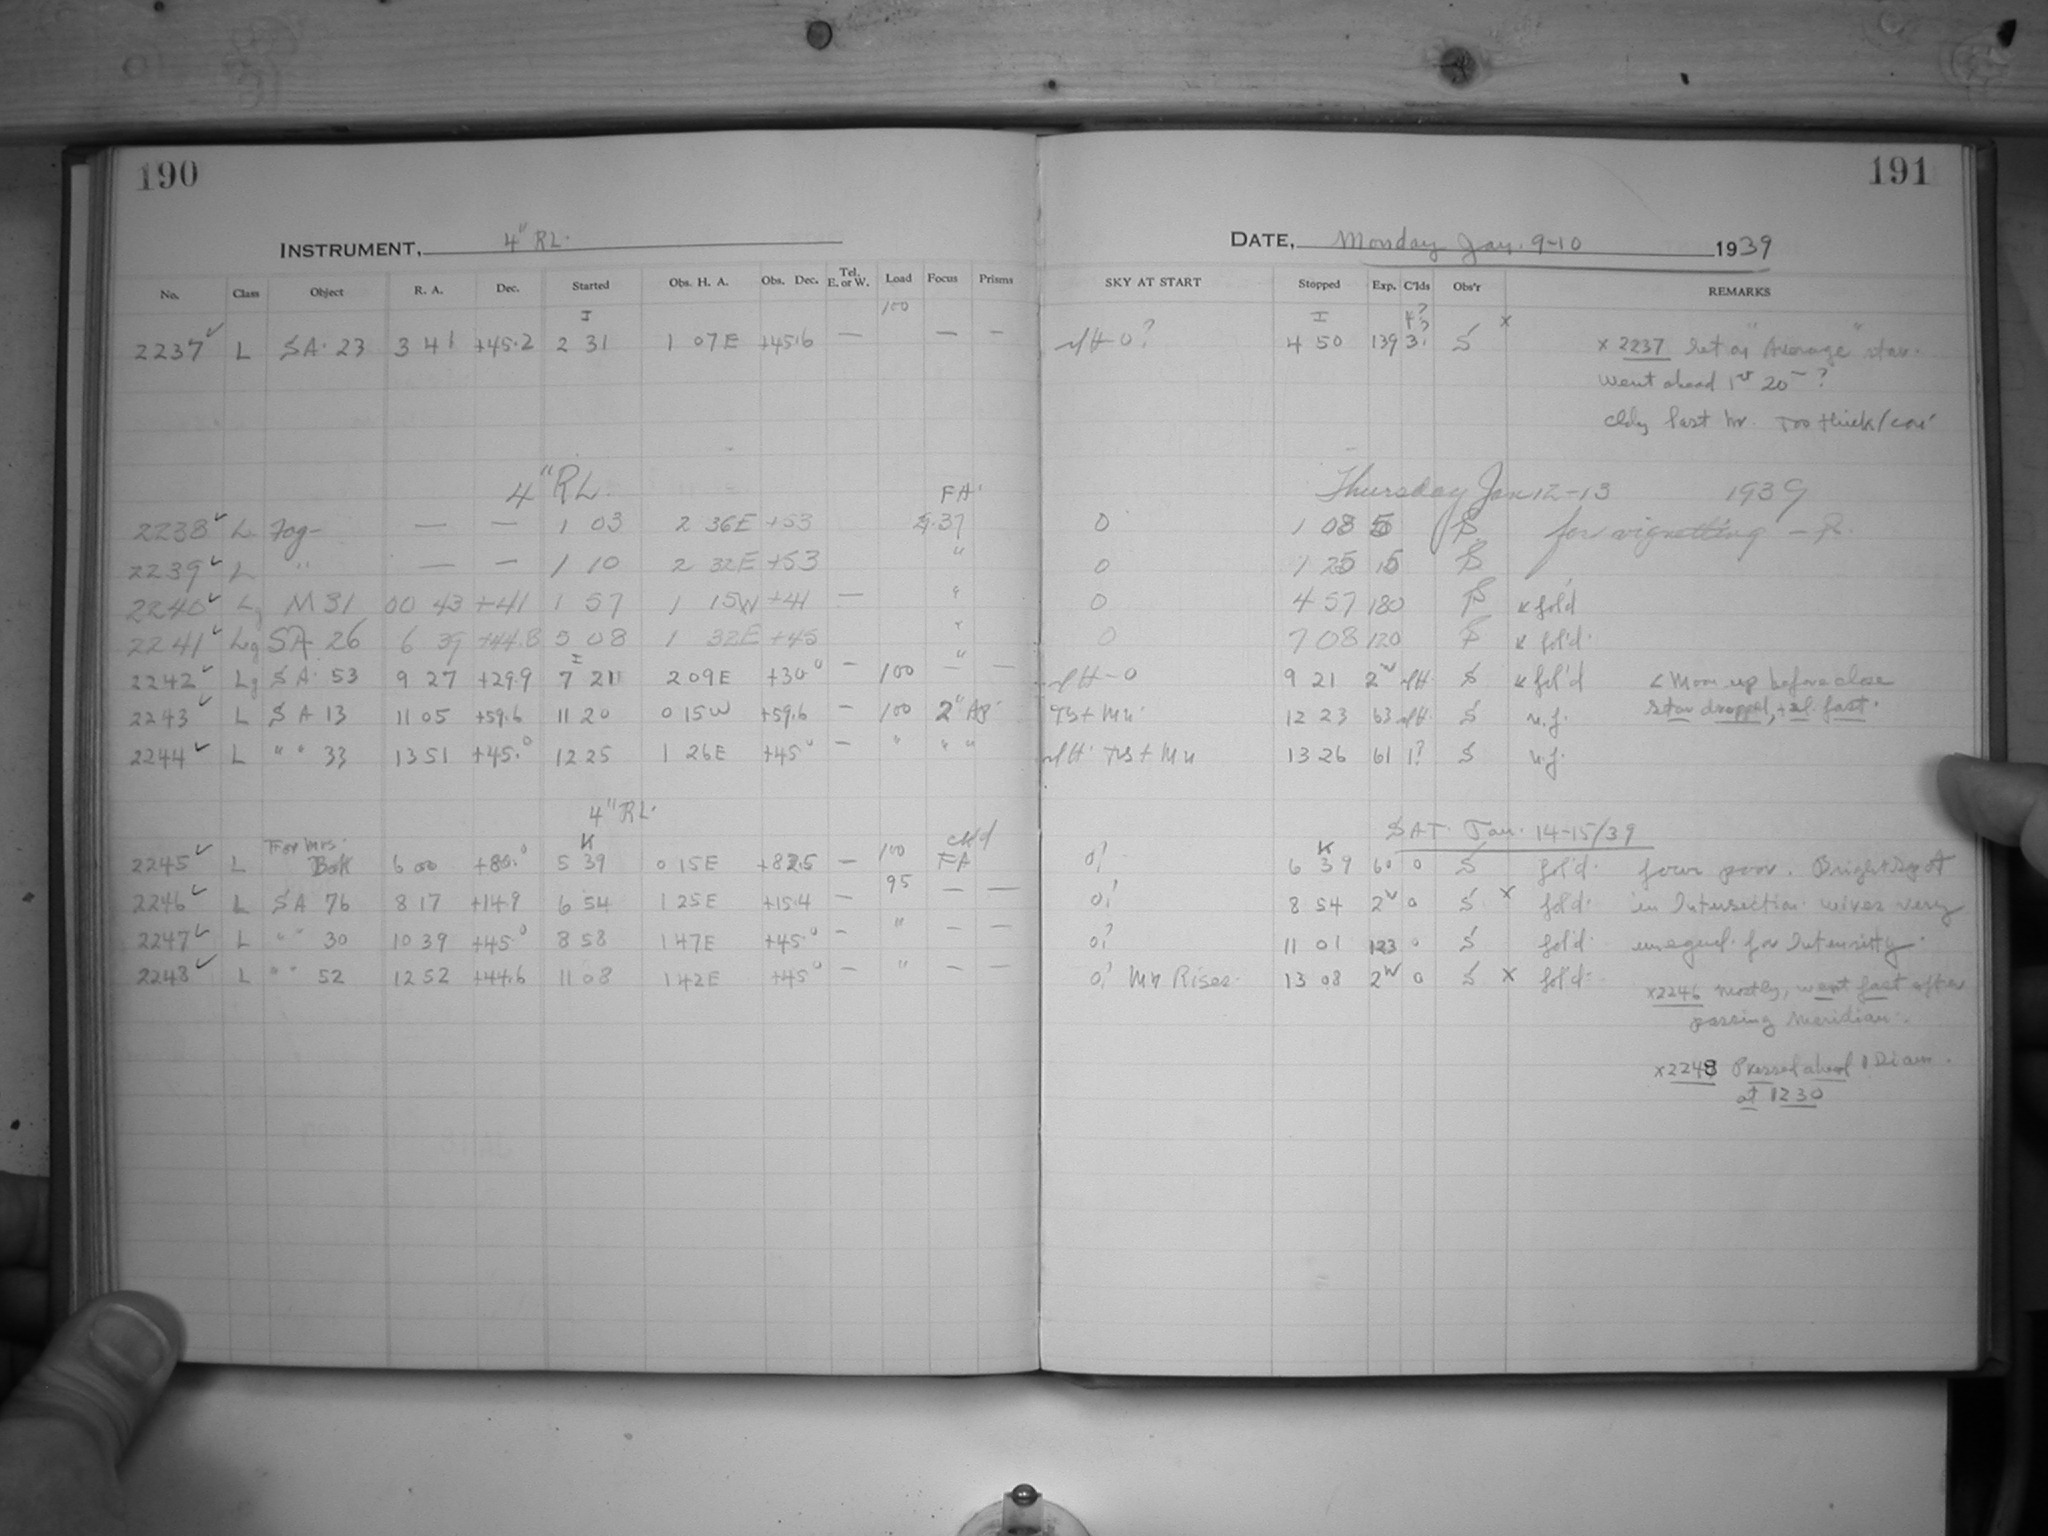 190
191
INSTRUMENT, 4" RL.
DATE, Monday Jan. 9-10 1939
No. Class Object R. A. Dec. Started Obs. H. A. Obs. Dec. Tel. E. or W. Load Focus Prisms SKY AT START Stopped Exp. C'lds Obs'r REMARKS
100
2237 ✓ L SA. 23 3 41 +45.2 2 31 1 07E +45.6 — — — 0? 4 50 139 S x x 2237 Set on "Average" star.
went ahead 1st 20 — ?
cldy last hr. Too thick
4" RL. FA. Thursday Jan 12-13 1939
2238 ✓ L Fog — — 1 03 2 36E +53 0 1 08 5 for vignetting
2239 ✓ L " — — 1 10 2 32E +53 " 0 1 25 15
2240 ✓ Lg M 31 00 43 +41 1 57 1 15W +41 — " 0 4 57 180 fol'd
2241 ✓ Lg SA 26 6 39 +44.8 5 08 1 32E +45 " 0 7 08 120 fol'd.
2242 ✓ Lg SA. 53 9 27 +29.9 7 21 2 09E +30° — 100 — — 9 21 2 S fol'd Moon up before close
2243 ✓ L SA 13 11 05 +59.6 11 20 0 15W +59.6 — 100 2" Ap. 12 23 63 S n.f. star dropped, fast.
2244 ✓ L " " 33 13 51 +45.° 12 25 1 26E +45° — " " " 13 26 61 1? S n.f.
4" RL. SAT. Jan. 14-15/39
2245 ✓ L For Mrs. Bok 6 00 +80.° 5 39 0 15E +82.5 — 100 FA 0! 6 39 60 0 S fol'd. poor. Bright spot
2246 ✓ L SA 76 8 17 +14.9 6 54 1 25E +15.4 — 95 — — 0! 8 54 2 0 S x fol'd. in Intersection wires very
2247 ✓ L " " 30 10 39 +45.° 8 58 1 47E +45.° — " — — 0? 11 01 123 0 S fol'd. unequal for Intensity.
2248 ✓ L " " 52 12 52 +44.6 11 08 1 42E +45° — " — — 0! Mn Rises. 13 08 2 0 S x fol'd.
x2246 mostly, went fast after
passing Meridian.
x2248 Pressed ahead 1 Diam.
at 1230